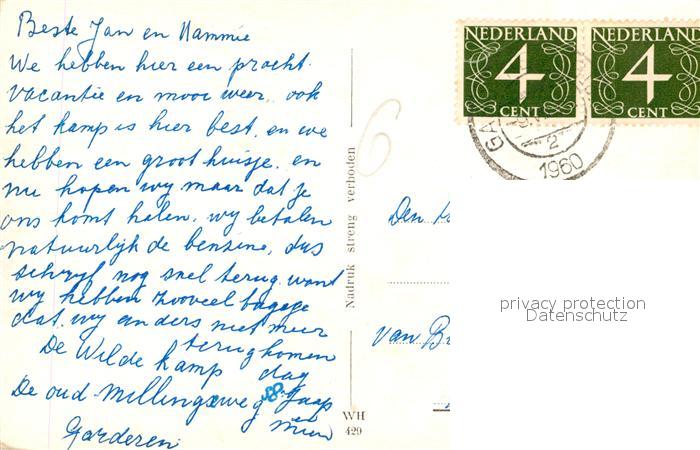 Beste Jan en Mammie
We hebben hier een pracht
vacantie en mooi weer, ook
het kamp is hier best, en we
hebben een groot huisje, en
nu hopen wy maar dat je
ons komt halen, wy betalen
natuurlijk de benzine, dus
schryf nog snel terug want
wy hebben zooveel bagage
dat wy anders niet meer
terug komen
De Wilde Kamp dag
De oud Millingseweg 58 Jaap
Garderen mien
Nadruk streng verboden
WH
429
NEDERLAND
4
CENT
NEDERLAND
4
CENT
GA
2
1960
6
Den
van Br
privacy protection
Datenschutz